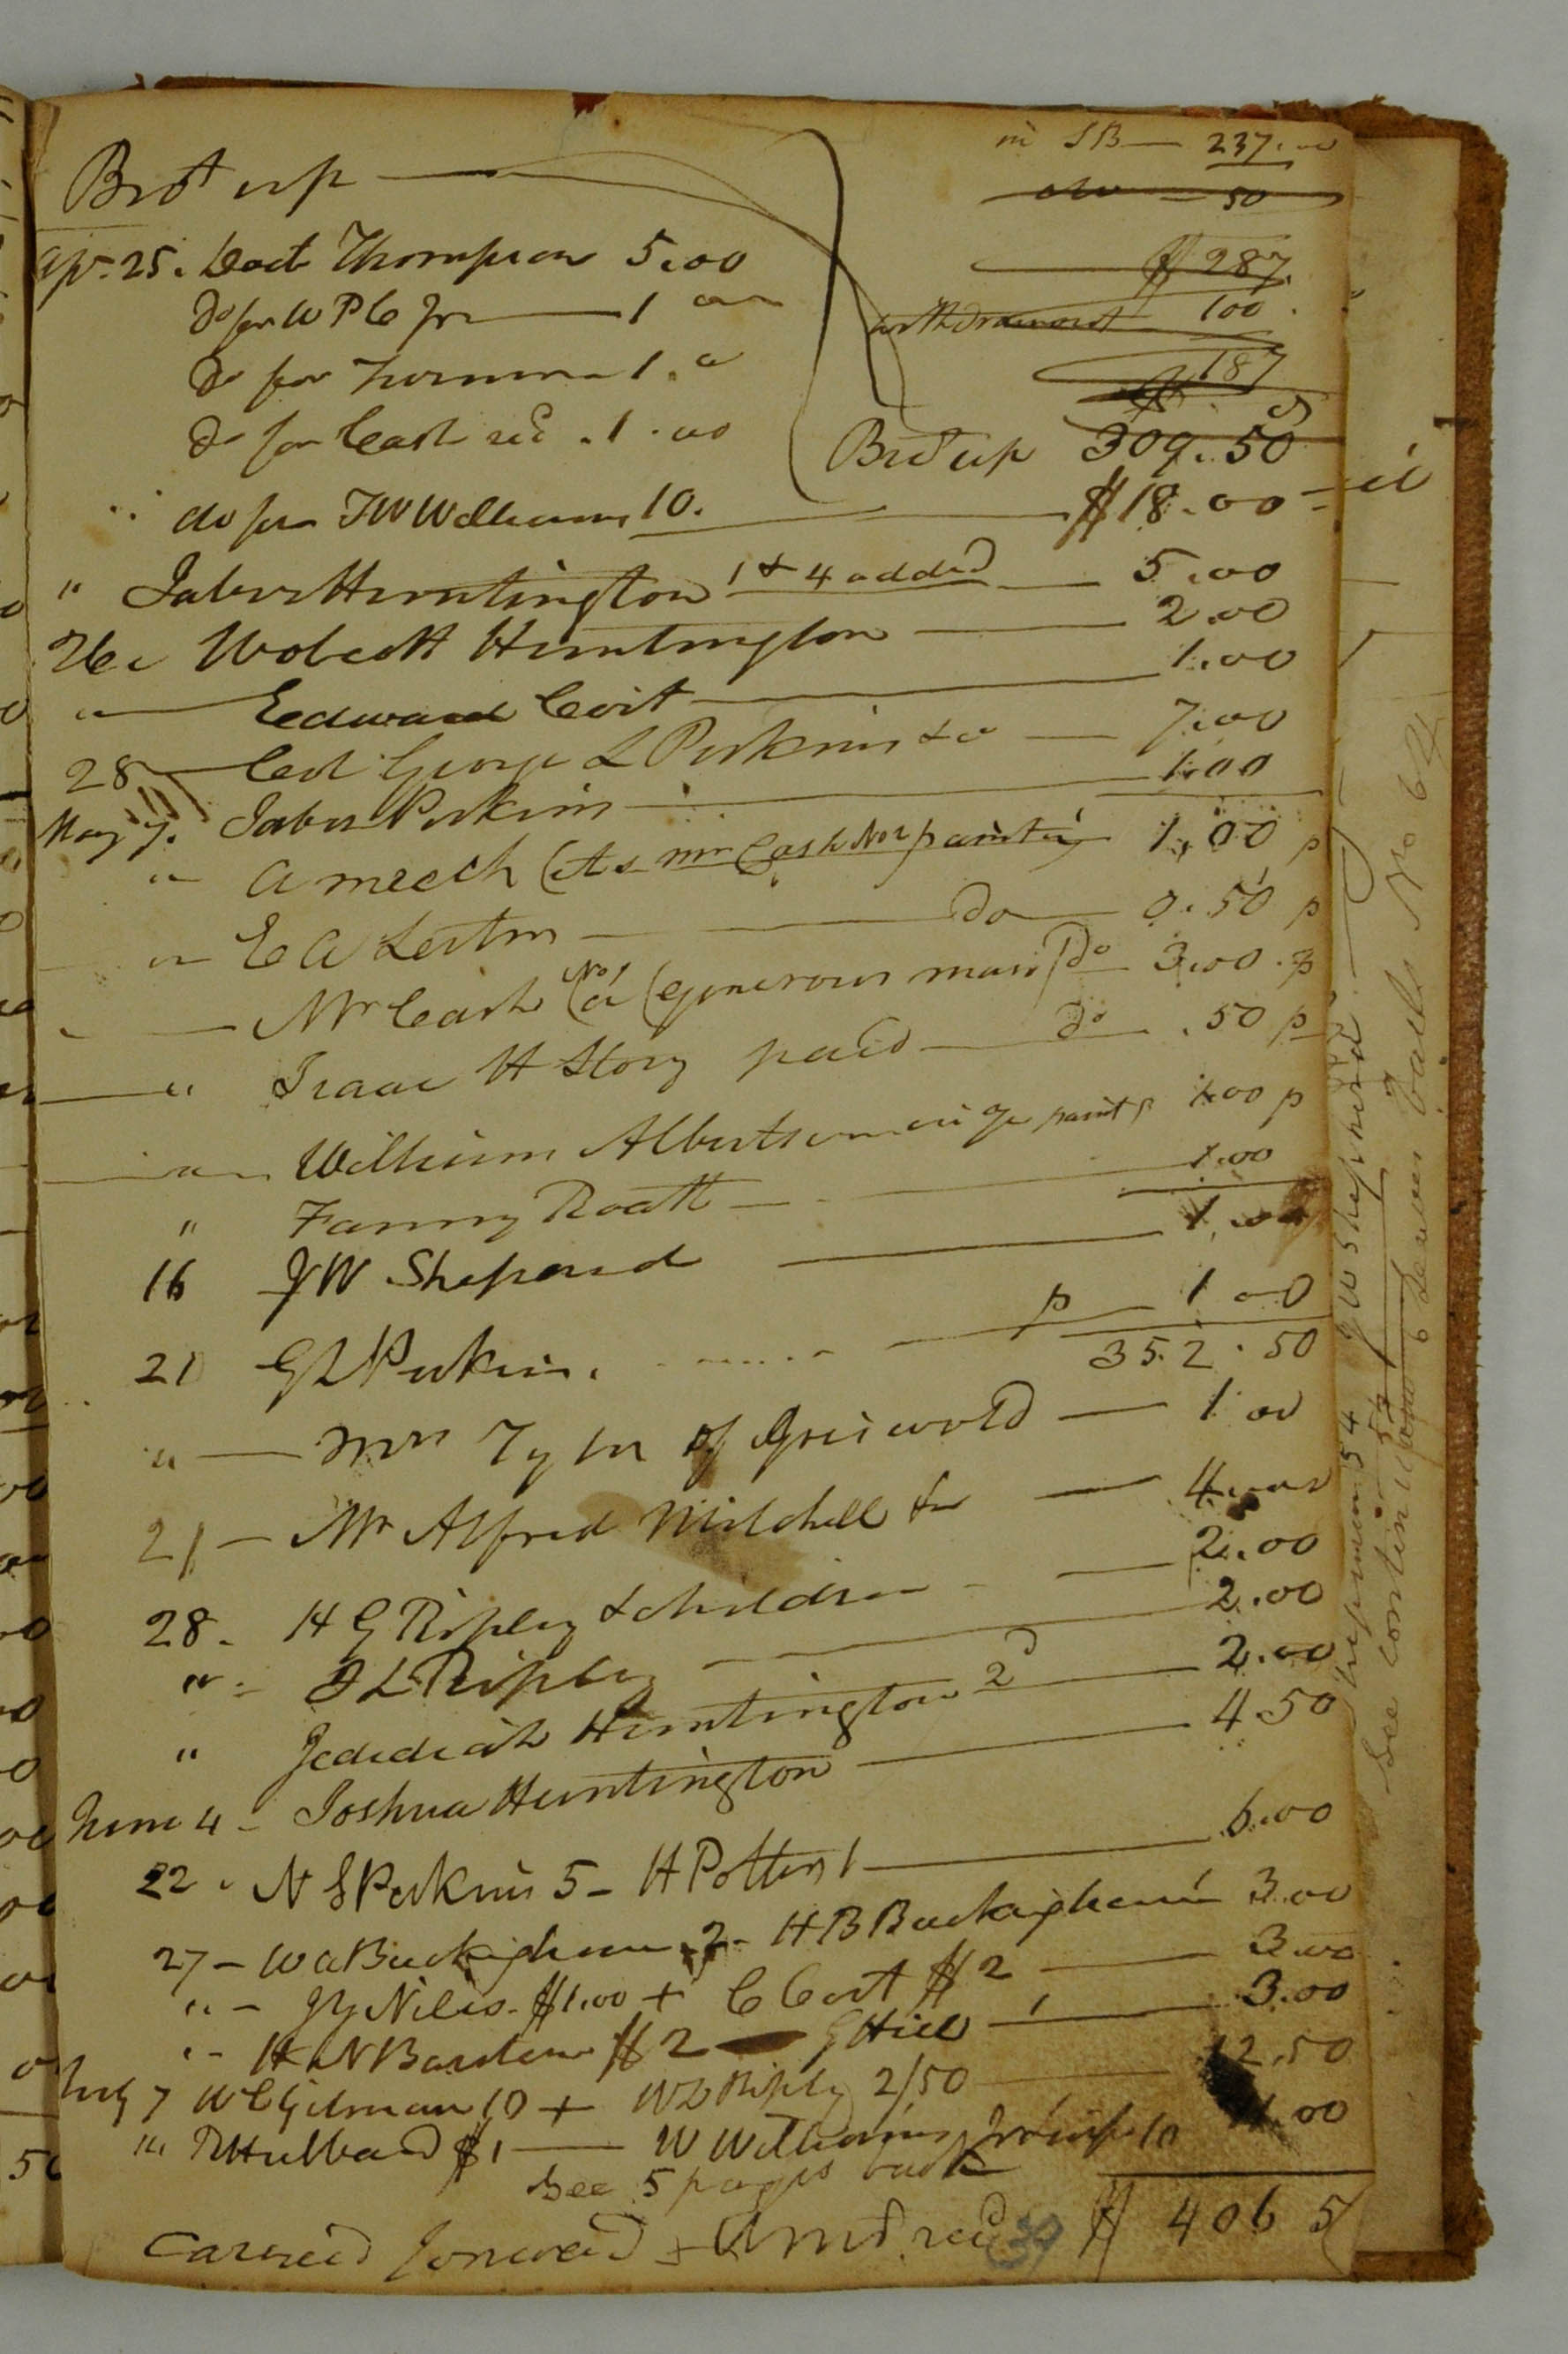 in SB — 237.00
Brot up — 50
$ 287.
Apr. 25. Doct Thompson 5.00
Do for W P C Jr — 1 00
withdrawn 100
Do for 1.00
187
Do for Cash recd . 1.00
Brot up 309.50
do for J W Williams 10. — $18.00
" Jabez Huntington 1 & 4 added — 5.00
26 Wolcott Huntington — 2.00
" Edward Coit — 1.00
28 Col George L Perkins & Co — 7.00
May 7. Jabez Perkins — 1.00
" A meech (As mr Cash No 2 painting 1.00 p
" E A Lester — Do — 0.50 p
" Mr Cash No 1 (a (generous man) Do 3.00 p
" Isaac H Story paid — Do . 50 p
" William Albertson 1.00 p
" Fanny Roath — 1.00
16 J W Shepard — 1.00
21 G L Perkins . p — 1 00
352.50
" — Mrs Tyler of Griswold — 1 00
21 — Mr Alfred Mitchell — 4.00
28. H G Ripley & children — 2.00
" J L Ripley — 2.00
" Jedediah Huntington 2d — 2.00
June 4 — Joshua Huntington — 4.50
22. N S Perkins 5 — H Potter 1 — 6.00
27 — W A Buckingham 2 — H B Buckingham 1 3.00
" — J Y Niles $1.00 + C Coit $2 — 3.00
" — H N Barstow $2 — G Hill 1 — 3.00
July 7 W C Gilman 10 + W D Ripley 2/50 — 12.50
" R Hubbard $1 — W Williams 10 11.00
See 5 pages back
Carried forward + Amt recd $ 406 5
J W Shepard
See continuation 6 leaves back No 64